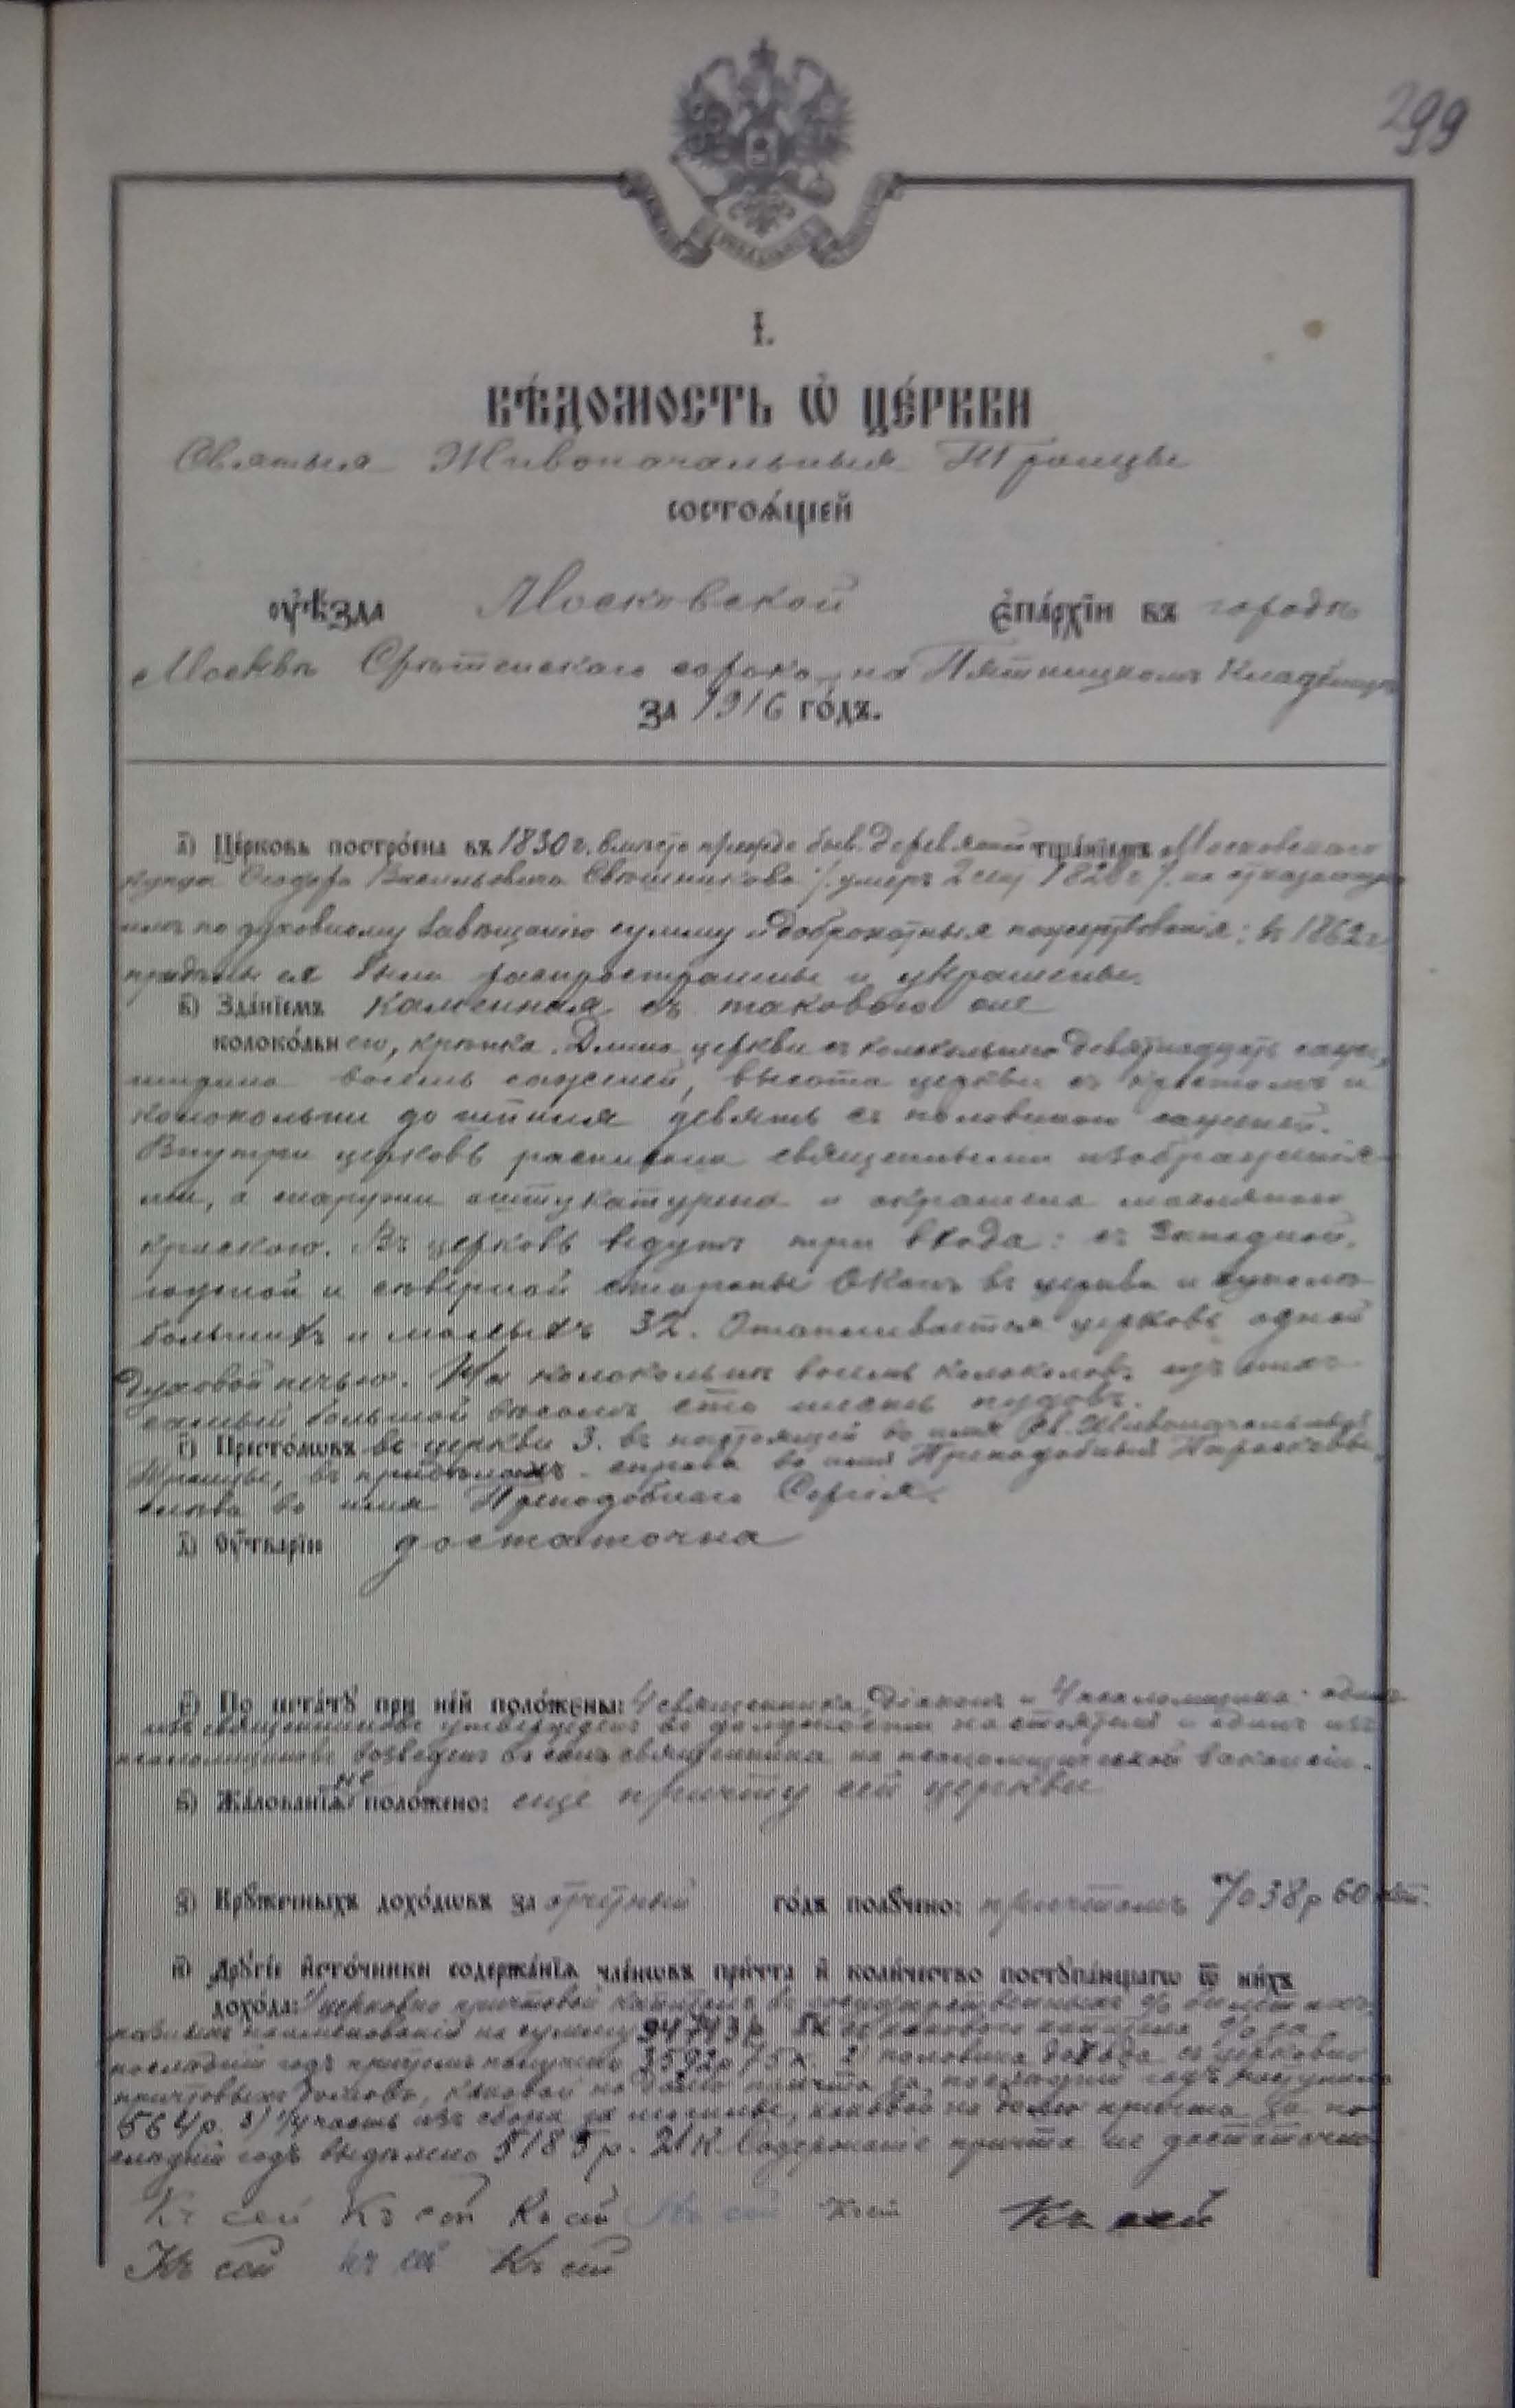 299
І.
Вѣ́домость ѡ҆ це́ркви
Святыя Живоначальныя Троицы
состоѧ́щей
ᲂу҆ѣ́зда Московской є҆па́рхїи въ городѣ
Москвѣ Срѣтенскаго сорока, на Пятницкомъ Кладбищѣ
за 1916 го́дъ.
а҃) Це́рковь постро́ена въ 1830 г. вмѣсто прежде быв. деревянной тща́нїемъ Московскаго
купца Ѳеодора Васильевича Свѣшникова /. умеръ 2 1820 г /. на
имъ по духовному завѣщанію сумму и доброхотныя пожертвованія; въ 1862 г.
придѣлы ея были распространены и украшены.
в҃) Зда́нїемъ каменная съ таковою же
колоко́льнею, крѣпка. Длина церкви съ колокольнею девятнадцать саж.,
ширина восемь саженей, высота церкви съ крестомъ и
колокольни до шпиля девять съ половиною саженей.
Внутри церковь расписана священными изображенія-
ми, а снаружи оштукатурена и окрашена масляною
краскою. Въ церковь ведутъ три входа: съ западной,
южной и сѣверной стороны Оконъ въ церкви и куполѣ
большихъ и малыхъ 32. Отапливается церковь одной
духовой печью. На колокольнѣ восемь колоколовъ, изъ нихъ
самый большой вѣсомъ сто пудовъ.
г҃) Престо́лѡвъ въ церкви 3. въ настоящей во имя Св. Живоначальныя
Троицы, въ придѣлахъ - справа во имя Преподобныя Параскевы,
слѣва во имя Преподобнаго Сергія.
д҃) Оу҆́тварїи достаточна
є҃) По шта́тꙋ при не́й поло́жены: 4 священника, діаконъ и 4 псаломщика - одинъ
изъ священниковъ утвержденъ въ должности настоятеля и одинъ изъ
псаломщиковъ возведенъ въ санъ священника на псаломщической вакансіи.
ѕ҃) Жа́лованїѧ не поло́жено: еще причту сей церкви
з҃) Крꙋ́жечныхъ дохо́дѡвъ за отчетный го́дъ полꙋ́чено: причтомъ 7038 р 60 коп.
и҃) Дрꙋгі́е и҆сто́чники содержа́нїѧ чле́нѡвъ при́чта и҆ коли́чество постꙋпа́ющагѡ ѿ ни́хъ
дохо́да: 1/ церковно причтовой капиталъ въ государственныхъ % билетахъ
наименованій на сумму 94743 р. 5 к съ каковаго капитала % за
послѣдній годъ причтомъ получено 3592 р 75 к. 2) половина дохода съ церковно
причтовыхъ домовъ, каковой на долю причта за послѣдній годъ
564 р. 3) 1/4 часть изъ сбора за могилы, каковой на долю причта за по-
слѣдній годъ выдѣлено 5185 р. 21 к. Содержаніе причта не достаточно
Къ сей Къ сей Къ сей Къ сей Къ сей Къ сей
Къ сей Къ сей Къ сей